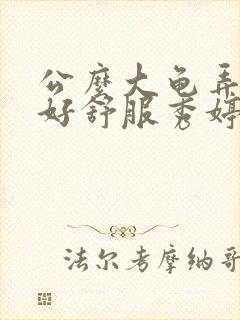 公麽大龟弄
好舒服秀婷
法尔考摩纳哥